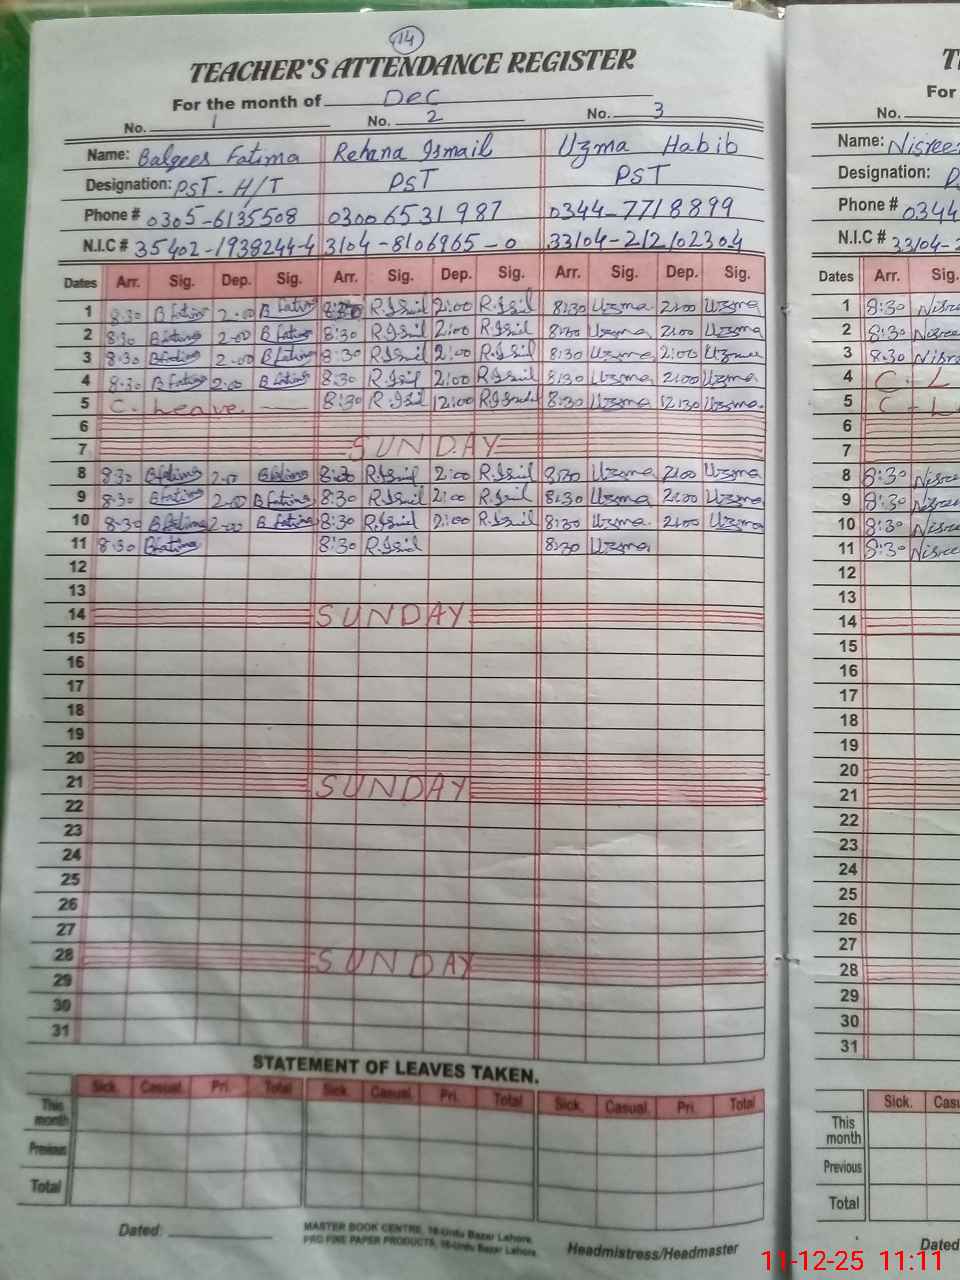 14
TEACHER'S ATTENDANCE REGISTER
For the month of Dec
No. 1 No. 2 No. 3
Name: Balqees Fatima Rehana Ismail Uzma Habib
Designation: PST - H/T PST PST
Phone # 0305-6135508 0300 6531987 0344-7718899
N.I.C # 35402-1938244-4 3104-8106965-0 33104-212102304
Dates Arr. Sig. Dep. Sig. Arr. Sig. Dep. Sig. Arr. Sig. Dep. Sig.
1 8:30 B fatima 2-00 B fatima 8:30 R.Isail 2:00 R.Isail 8:30 Uzma 2:00 Uzma
2 8:30 B fatima 2-00 B fatima 8:30 R.Isail 2:00 R.Isail 8:30 Uzma 2:00 Uzma
3 8:30 B fatima 2-00 B fatima 8:30 R.Isail 2:00 R.Isail 8:30 Uzma 2:00 Uzma
4 8:30 B fatima 2:00 B fatima 8:30 R.Isail 2:00 R.Isail 8:30 Uzma 2:00 Uzma
5 C. Leave 8:30 R.Isail 12:00 R.Isail 8:30 Uzma 12:30 Uzma
6
7 SUNDAY
8 8:30 B fatima 2-00 B fatima 8:30 R.Isail 2:00 R.Isail 8:30 Uzma 2:00 Uzma
9 8:30 B fatima 2-00 B fatima 8:30 R.Isail 2:00 R.Isail 8:30 Uzma 2:00 Uzma
10 8:30 B fatima 2-00 B fatima 8:30 R.Isail 2:00 R.Isail 8:30 Uzma 2:00 Uzma
11 8:30 B fatima 8:30 R.Isail 8:30 Uzma
12
13
14 SUNDAY
15
16
17
18
19
20
21 SUNDAY
22
23
24
25
26
27
28 SUNDAY
29
30
31
STATEMENT OF LEAVES TAKEN.
Sick. Casual. Pri. Total Sick. Casual. Pri. Total Sick. Casual. Pri. Total
This month
Previous
Total
Dated:
MASTER BOOK CENTRE, 16-Urdu Bazar Lahore.
PRO FINE PAPER PRODUCTS, 16-Urdu Bazar Lahore.
Headmistress/Headmaster
For
No.
Name:
Designation:
Phone # 0344
N.I.C # 33104-
Dates Arr. Sig.
1 8:30
2 8:30
3 8:30
4 C - L
5 C - L
6
7
8 8:30
9 8:30
10 8:30
11 8:30
12
13
14
15
16
17
18
19
20
21
22
23
24
25
26
27
28
29
30
31
Sick.
This month
Previous
Total
Dated
11-12-25 11:11